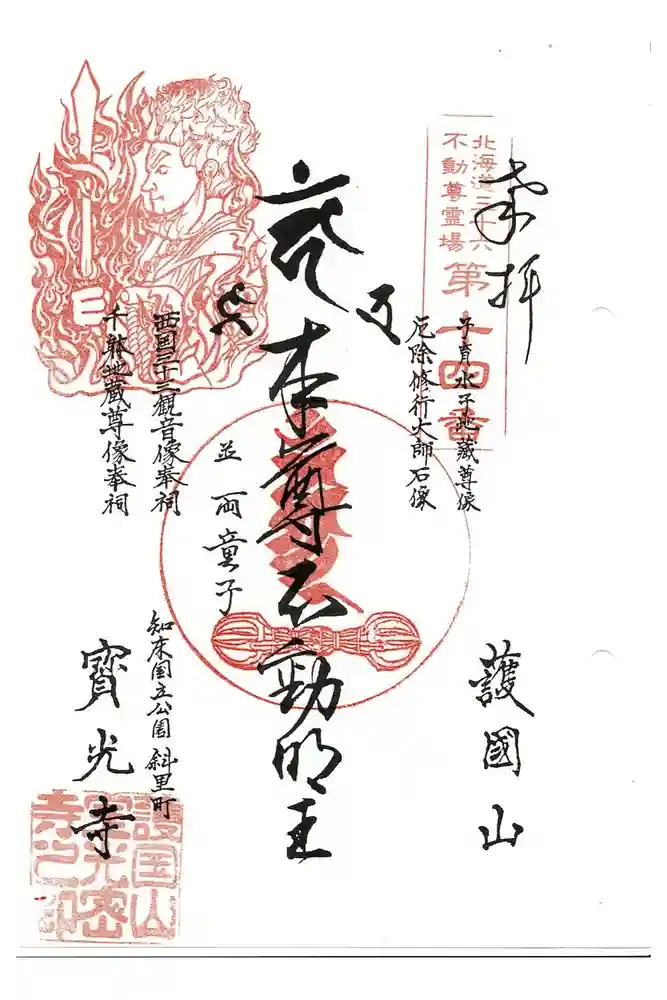 奉拝
護國山
北海道三十六
不動尊霊場
第十四番
子育水子地蔵尊像
厄除修行大師石像
本尊不動明王
並両童子
西国三十三観音像奉祠
千躰地蔵尊像奉祠
知床国立公園 斜里町
寳光寺
護国山
寺之印